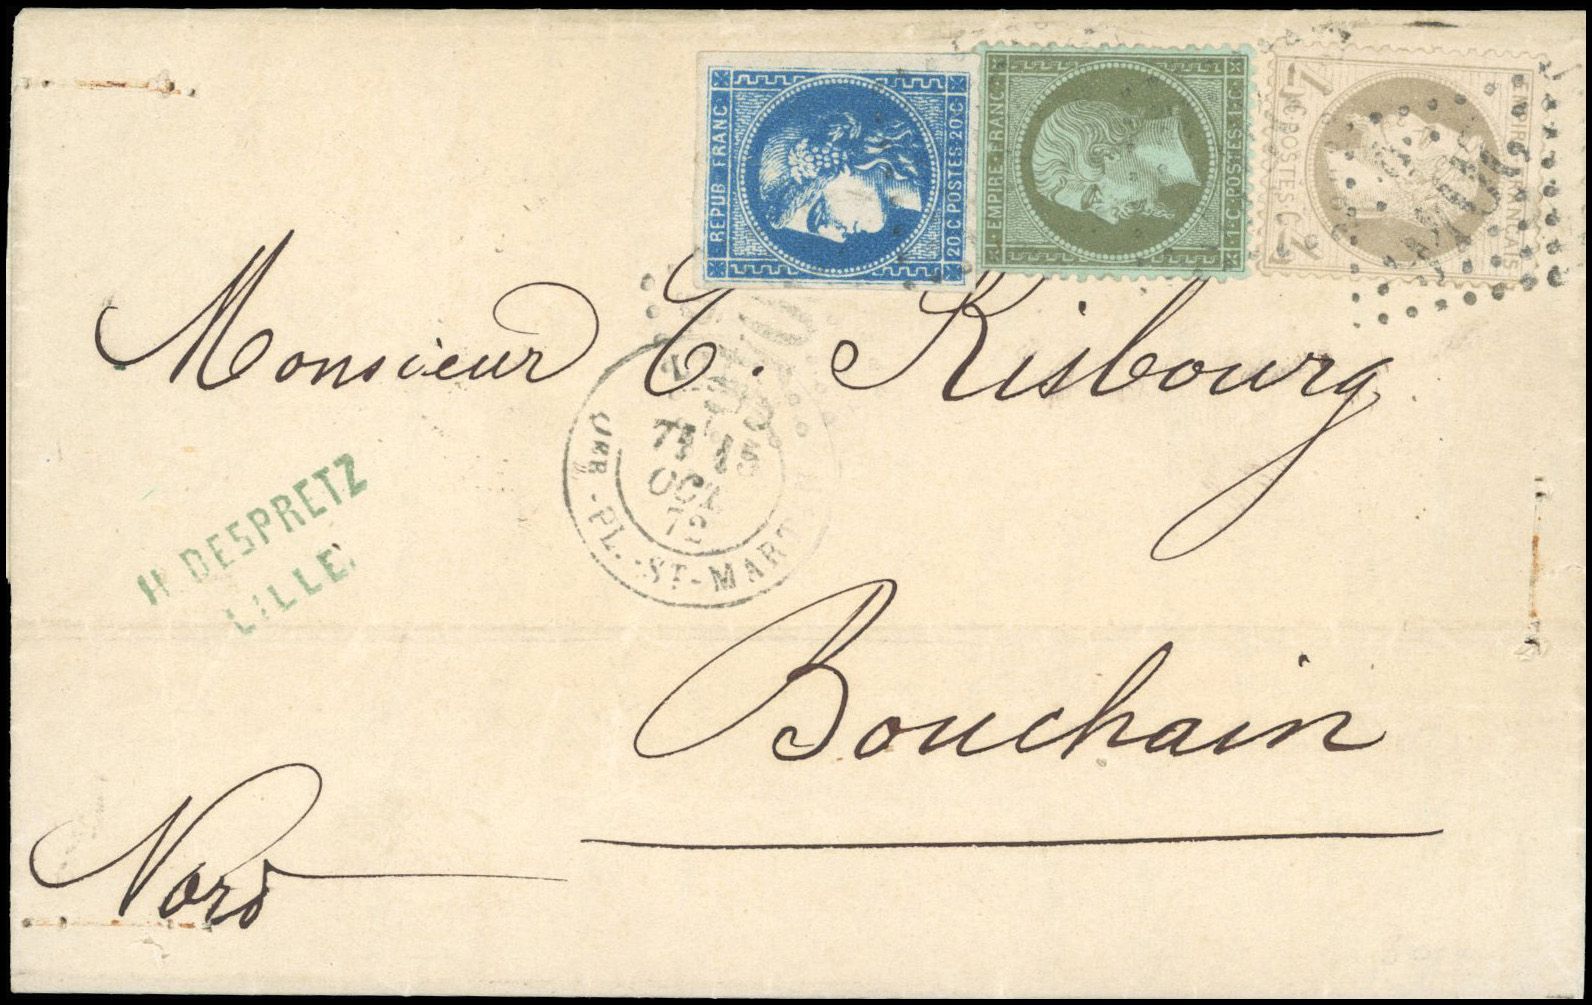 REPUB. FRANC.
20 C. POSTES. 20 C.
EMPIRE. FRANC.
1. C. POSTES. 1. C.
EMPIRE FRANÇAIS
4 C. POSTES C. 4
Monsieur E. Risbourg
7E
15
OCT.
72
PL. ST-MART
H DESPRETZ
LILLE
Bouchain
Nord